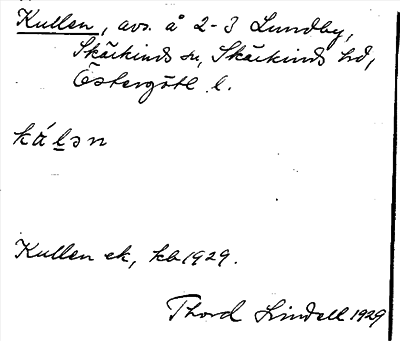 Kullen, avs. å 2-3 Lundby,
Skärkinds sn, Skärkinds hd,
Östergötl. l.
kálən
Kullen ek, kb 1929.
Thord Lindell 1929